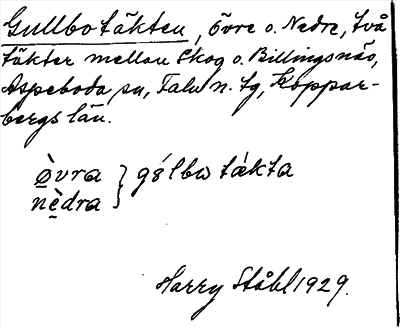 Gullbotäkten, Övre o. Nedre, två
täkter mellan Skog o. Billingsnäs,
Aspeboda sn, Falu n. tg, Koppar-
bergs län.
ø̀vra } gó̤lbotäkta
nè̤dra
Harry Ståhl 1929.